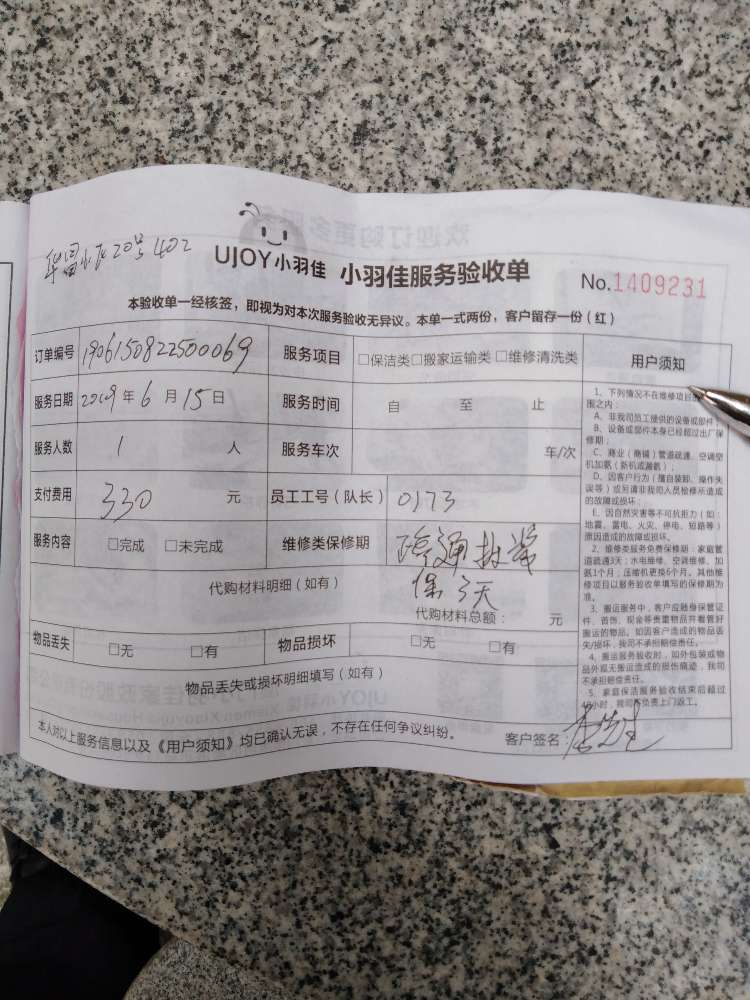 小区20号402
UJOY小羽佳 小羽佳服务验收单 No.1409231
本验收单一经核签，即视为对本次服务验收无异议。本单一式两份，客户留存一份（红）
订单编号 1906150822500069 服务项目 □保洁类□搬家运输类□维修清洗类 用户须知
服务日期 2019年6月15日 服务时间 自 至 止
服务人数 1 人 服务车次 车/次
支付费用 330 元 员工工号（队长） 0173
服务内容 □完成 □未完成 维修类保修期 疏通
保3天
代购材料明细（如有）
代购材料总额： 元
物品丢失 □无 □有 物品损坏 □无 □有
物品丢失或损坏明细填写（如有）
1、下列情况不在维修项目的
围之内：
A、非我司员工提供的设备或部件；
B、设备或部件本身已经超过出厂保
修期；
C、商业（商铺）管道疏通、空调空
机加氨（新机或漏氨）；
D、因客户行为（擅自装卸、操作失
误等）或另请非我司人员检修所造成
的故障或损坏；
E、因自然灾害等不可抗拒力（如：
地震、雷电、火灾、停电、短路等）
原因造成的故障或损坏。
2、维修类服务免费保修期：家庭管
道疏通3天；水电维修、空调维修、加
氨1个月；压缩机更换6个月。其他维
修项目以服务验收单填写的保修期为
准。
3、搬运服务中，客户应随身保管证
件、首饰、现金等贵重物品并看管好
搬运的物品。如因客户造成的物品丢
失/损坏，我司不承担赔偿责任。
4、搬运服务验收时，如外包装或物
品外观无搬运造成的损伤痕迹，我司
不承担赔偿责任。
5、家庭保洁服务验收结束后超过
小时，我司不负责上门返工。
本人对以上服务信息以及《用户须知》均已确认无误，不存在任何争议纠纷。 客户签名：李先生